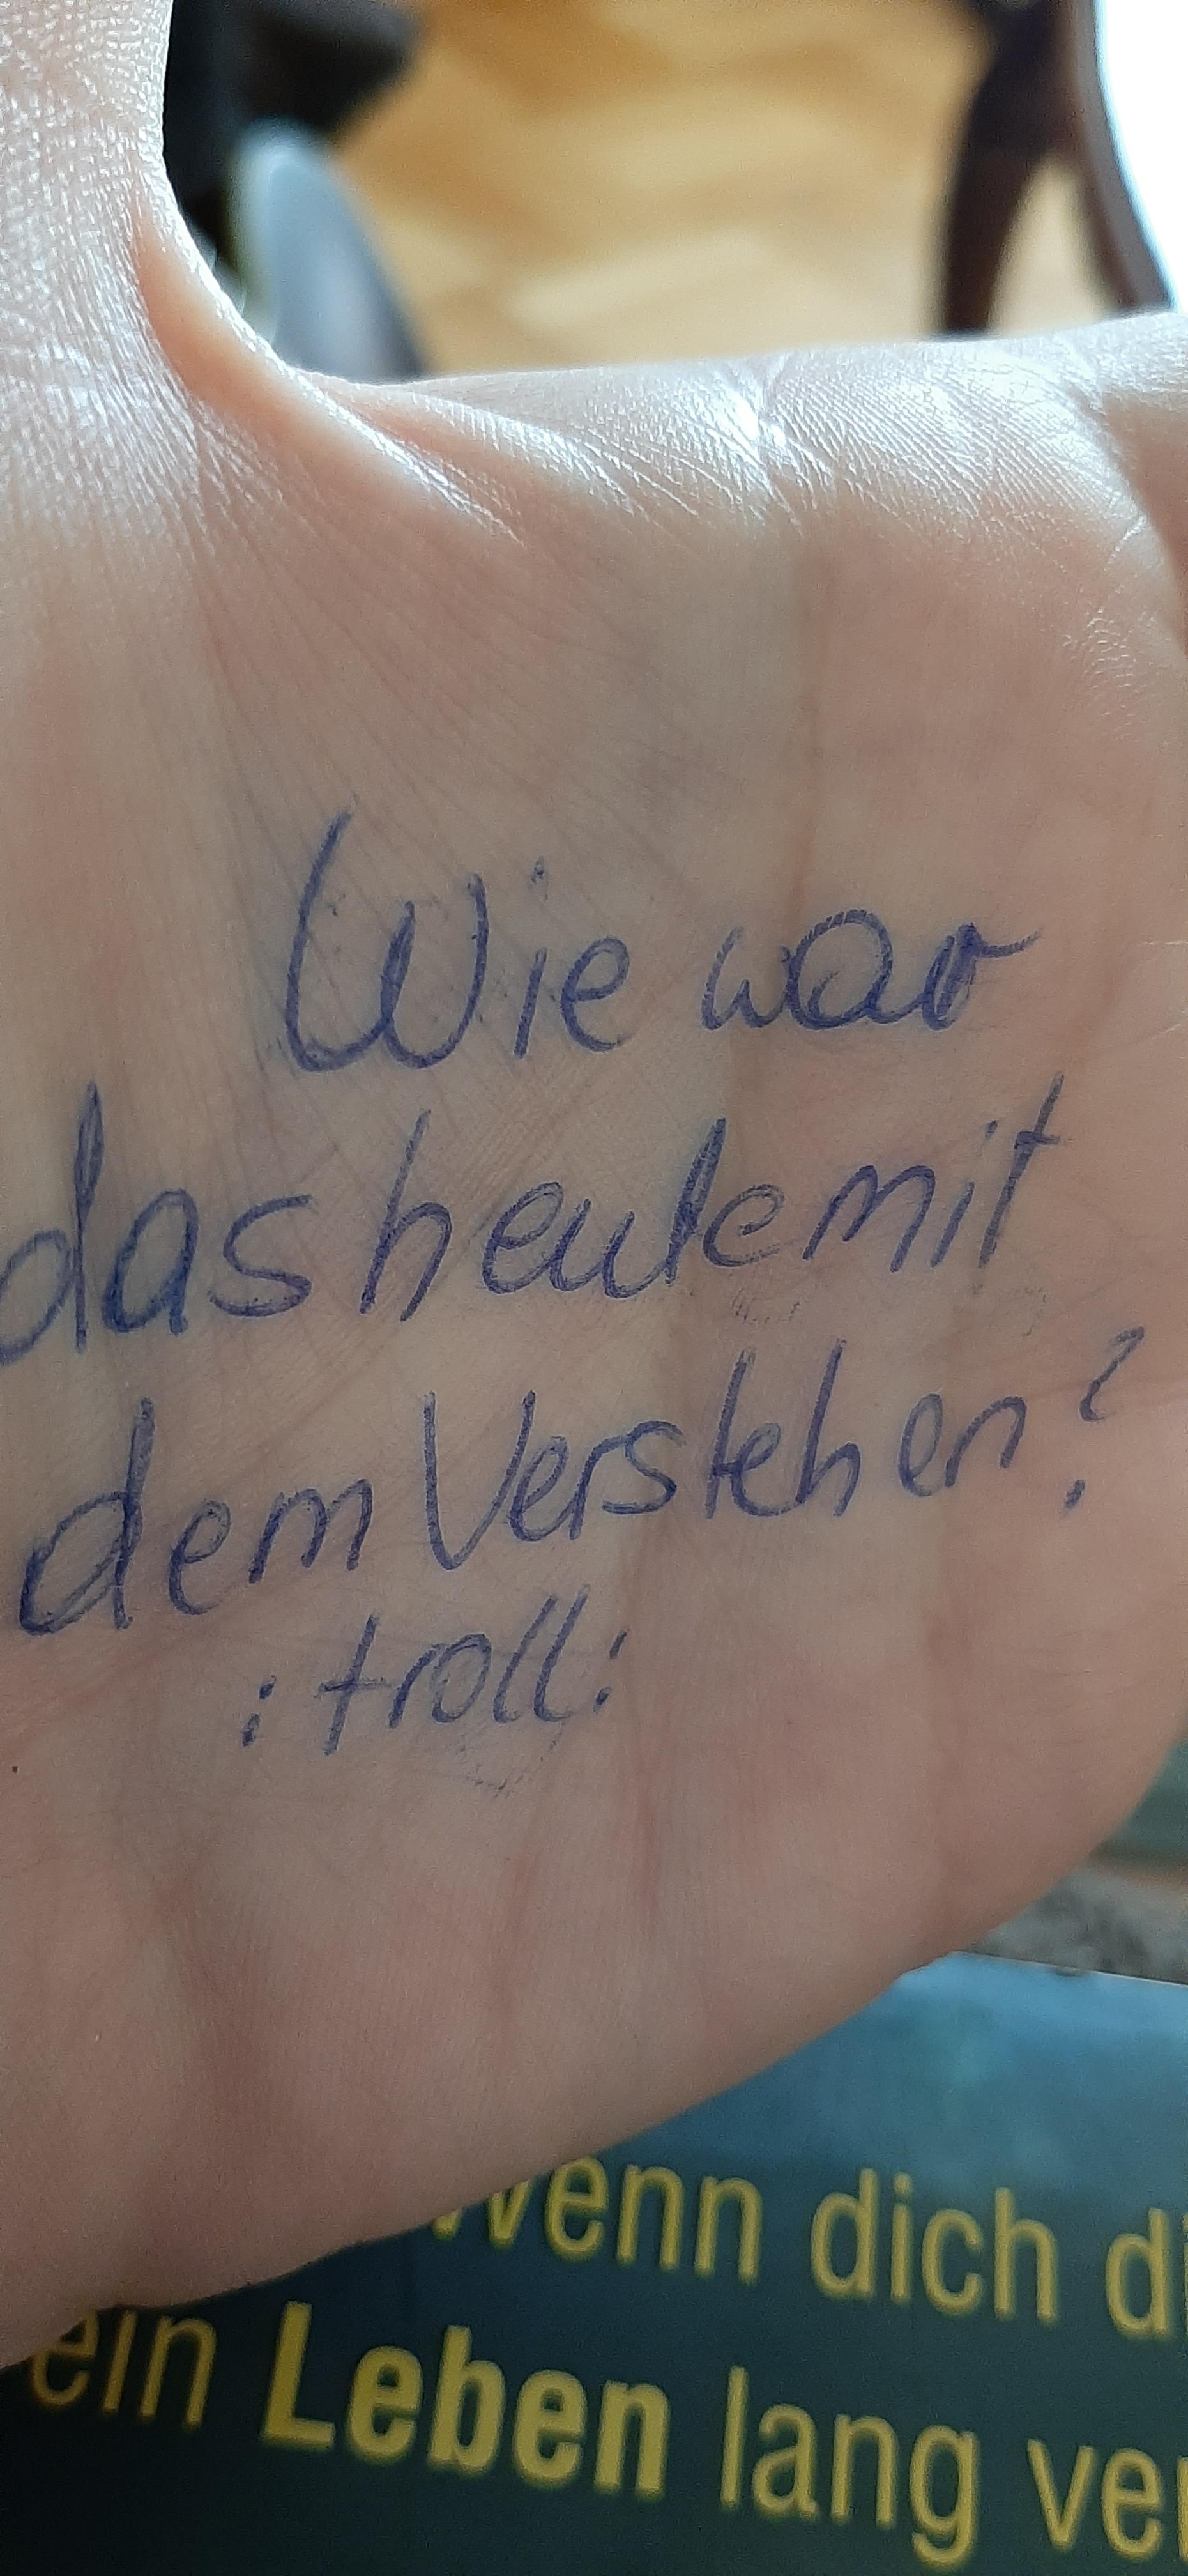 Wie war
das heute mit
dem Verstehen?
:troll:
Wenn dich di
ein Leben lang ver